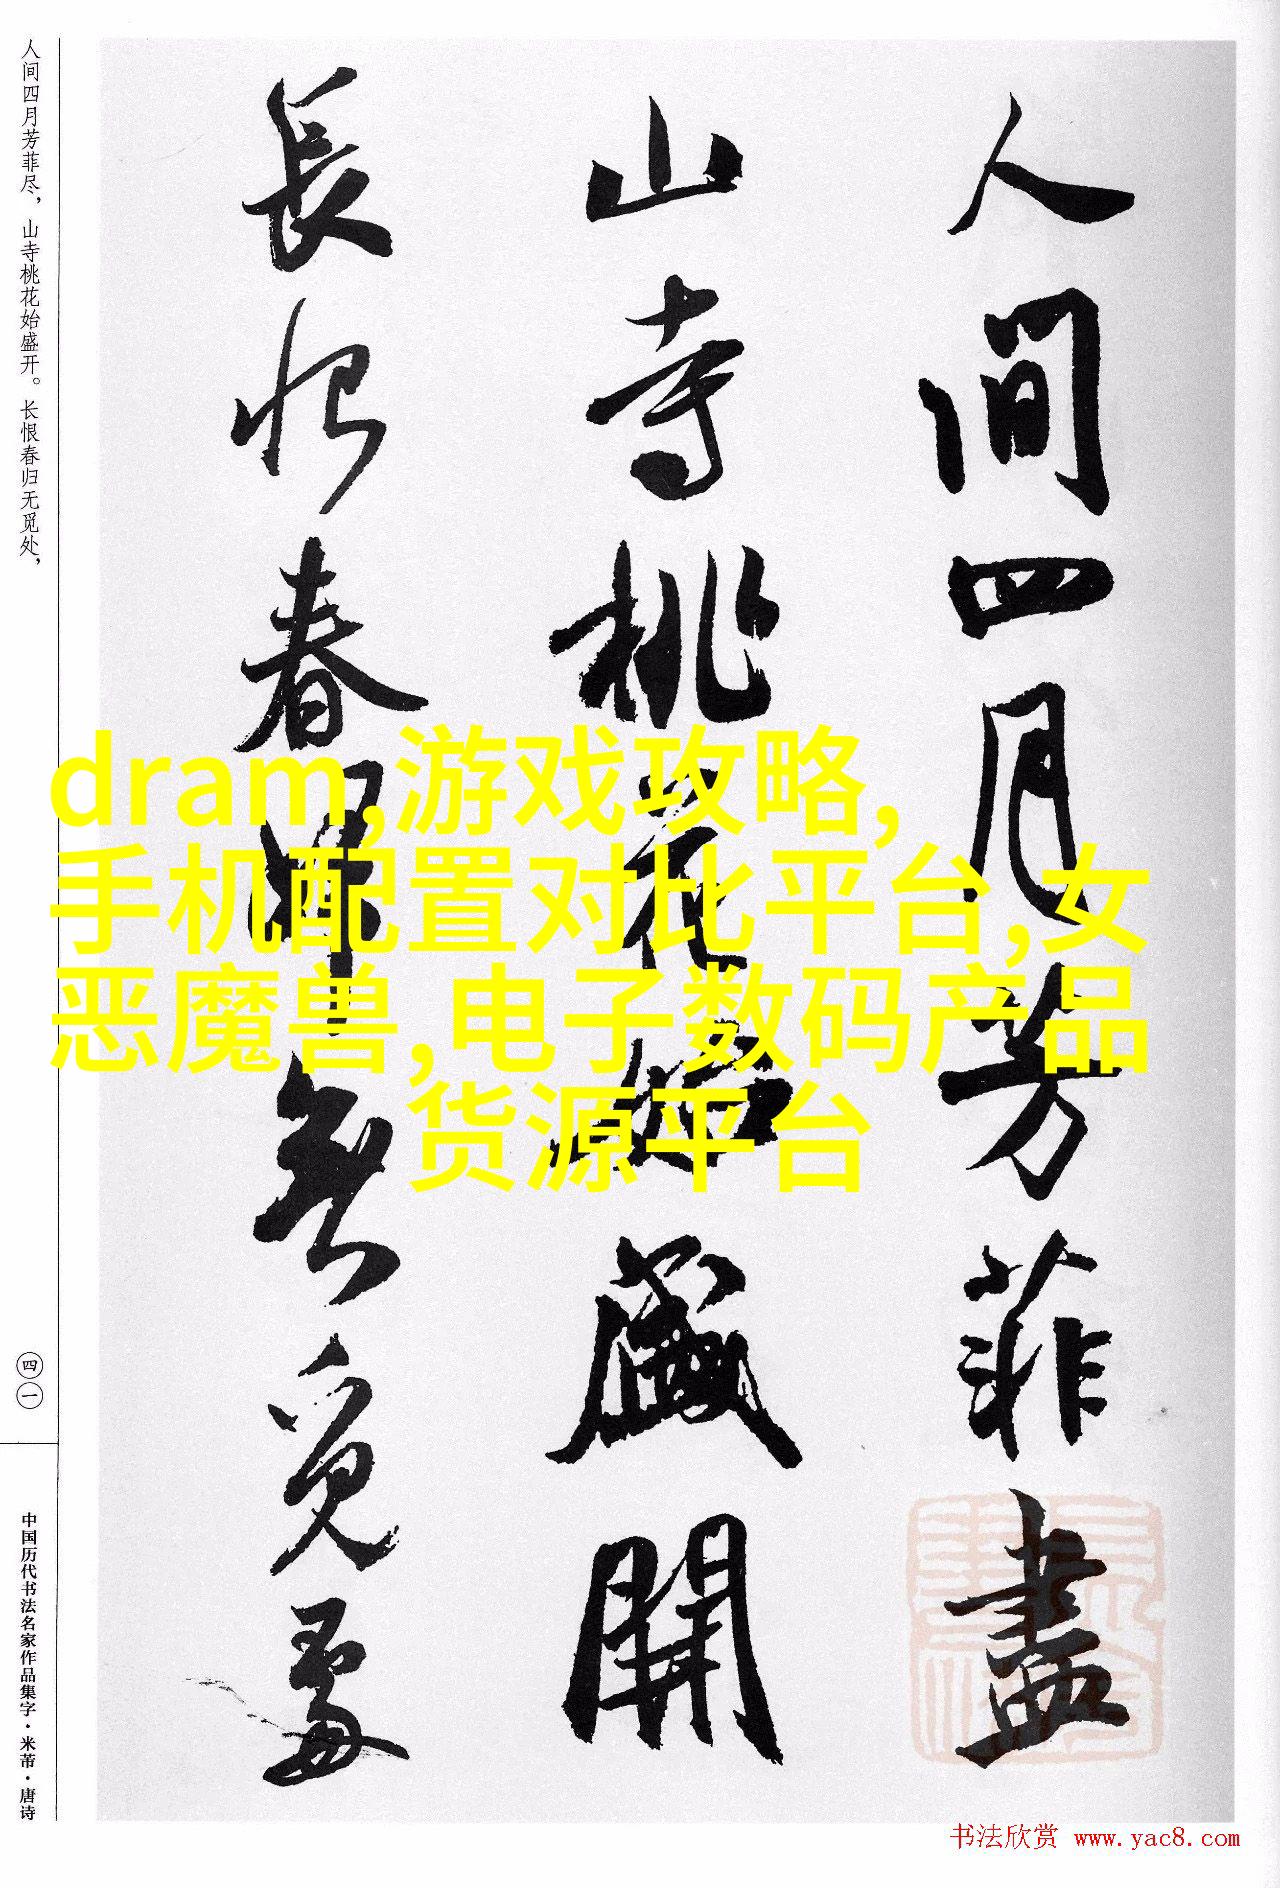 人间四月芳菲尽，山寺桃花始盛开。长恨春归无觅处，
四一
中国历代书法名家作品集字·米芾·唐诗
人間四月芳菲盡
山寺桃花始盛開
長恨春歸無覓處
dram,游戏攻略,
手机配置对比平台,女
恶魔兽,电子数码产品
货源平台
书法欣赏 www.yac8.com